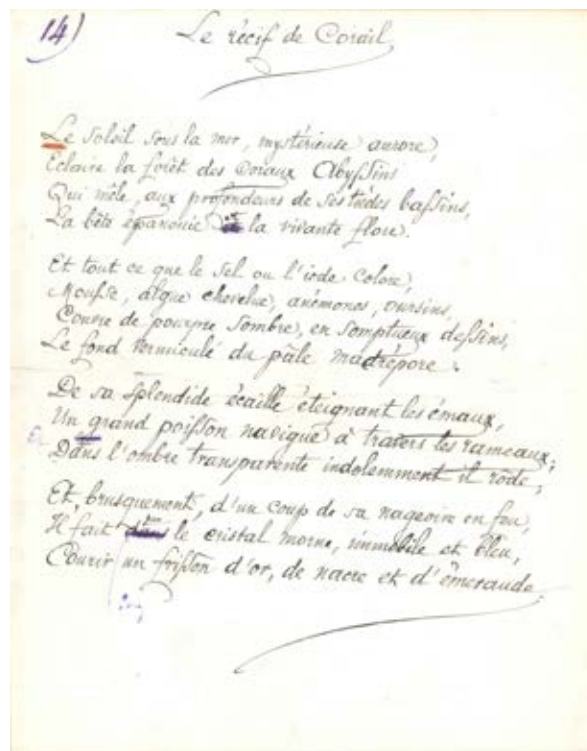 14)
Le récif de Corail
Le soleil sous la mer, mystérieuse aurore,
Eclaire la forêt des Coraux Abyssins
Qui mêle, aux profondeurs de ses tièdes bassins,
La bête épanouie et la vivante flore.
Et tout ce que le sel ou l'iode colore,
Mousse, algue chevelue, anémones, oursins,
Couvre de pourpre sombre, en somptueux dessins,
Le fond vermiculé du pâle madrépore.
De sa splendide écaille éteignant les émaux,
Un grand poisson navigue à travers les rameaux;
Dans l'ombre transparente indolemment il rôde;
Et, brusquement, d'un coup de sa nageoire en feu,
Il fait dans le cristal morne, immobile et bleu,
Courir un frisson d'or, de nacre et d'émeraude.